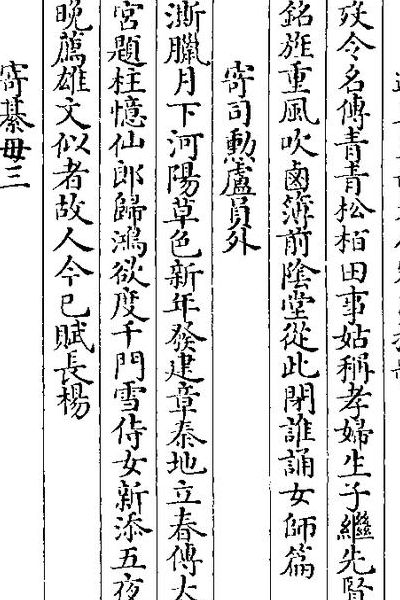 歿令名傳青青松栢田事姑稱孝婦生子繼先賢
銘旌重風吹鹵簿前陰堂從此閉誰誦女師篇
寄司勳盧員外
澌臘月下河陽草色新年發建章秦地立春傳
宮題柱憶仙郎歸鴻欲度千門雪侍女新添五夜
晚薦雄文似者故人今已賦長楊
寄綦毋三